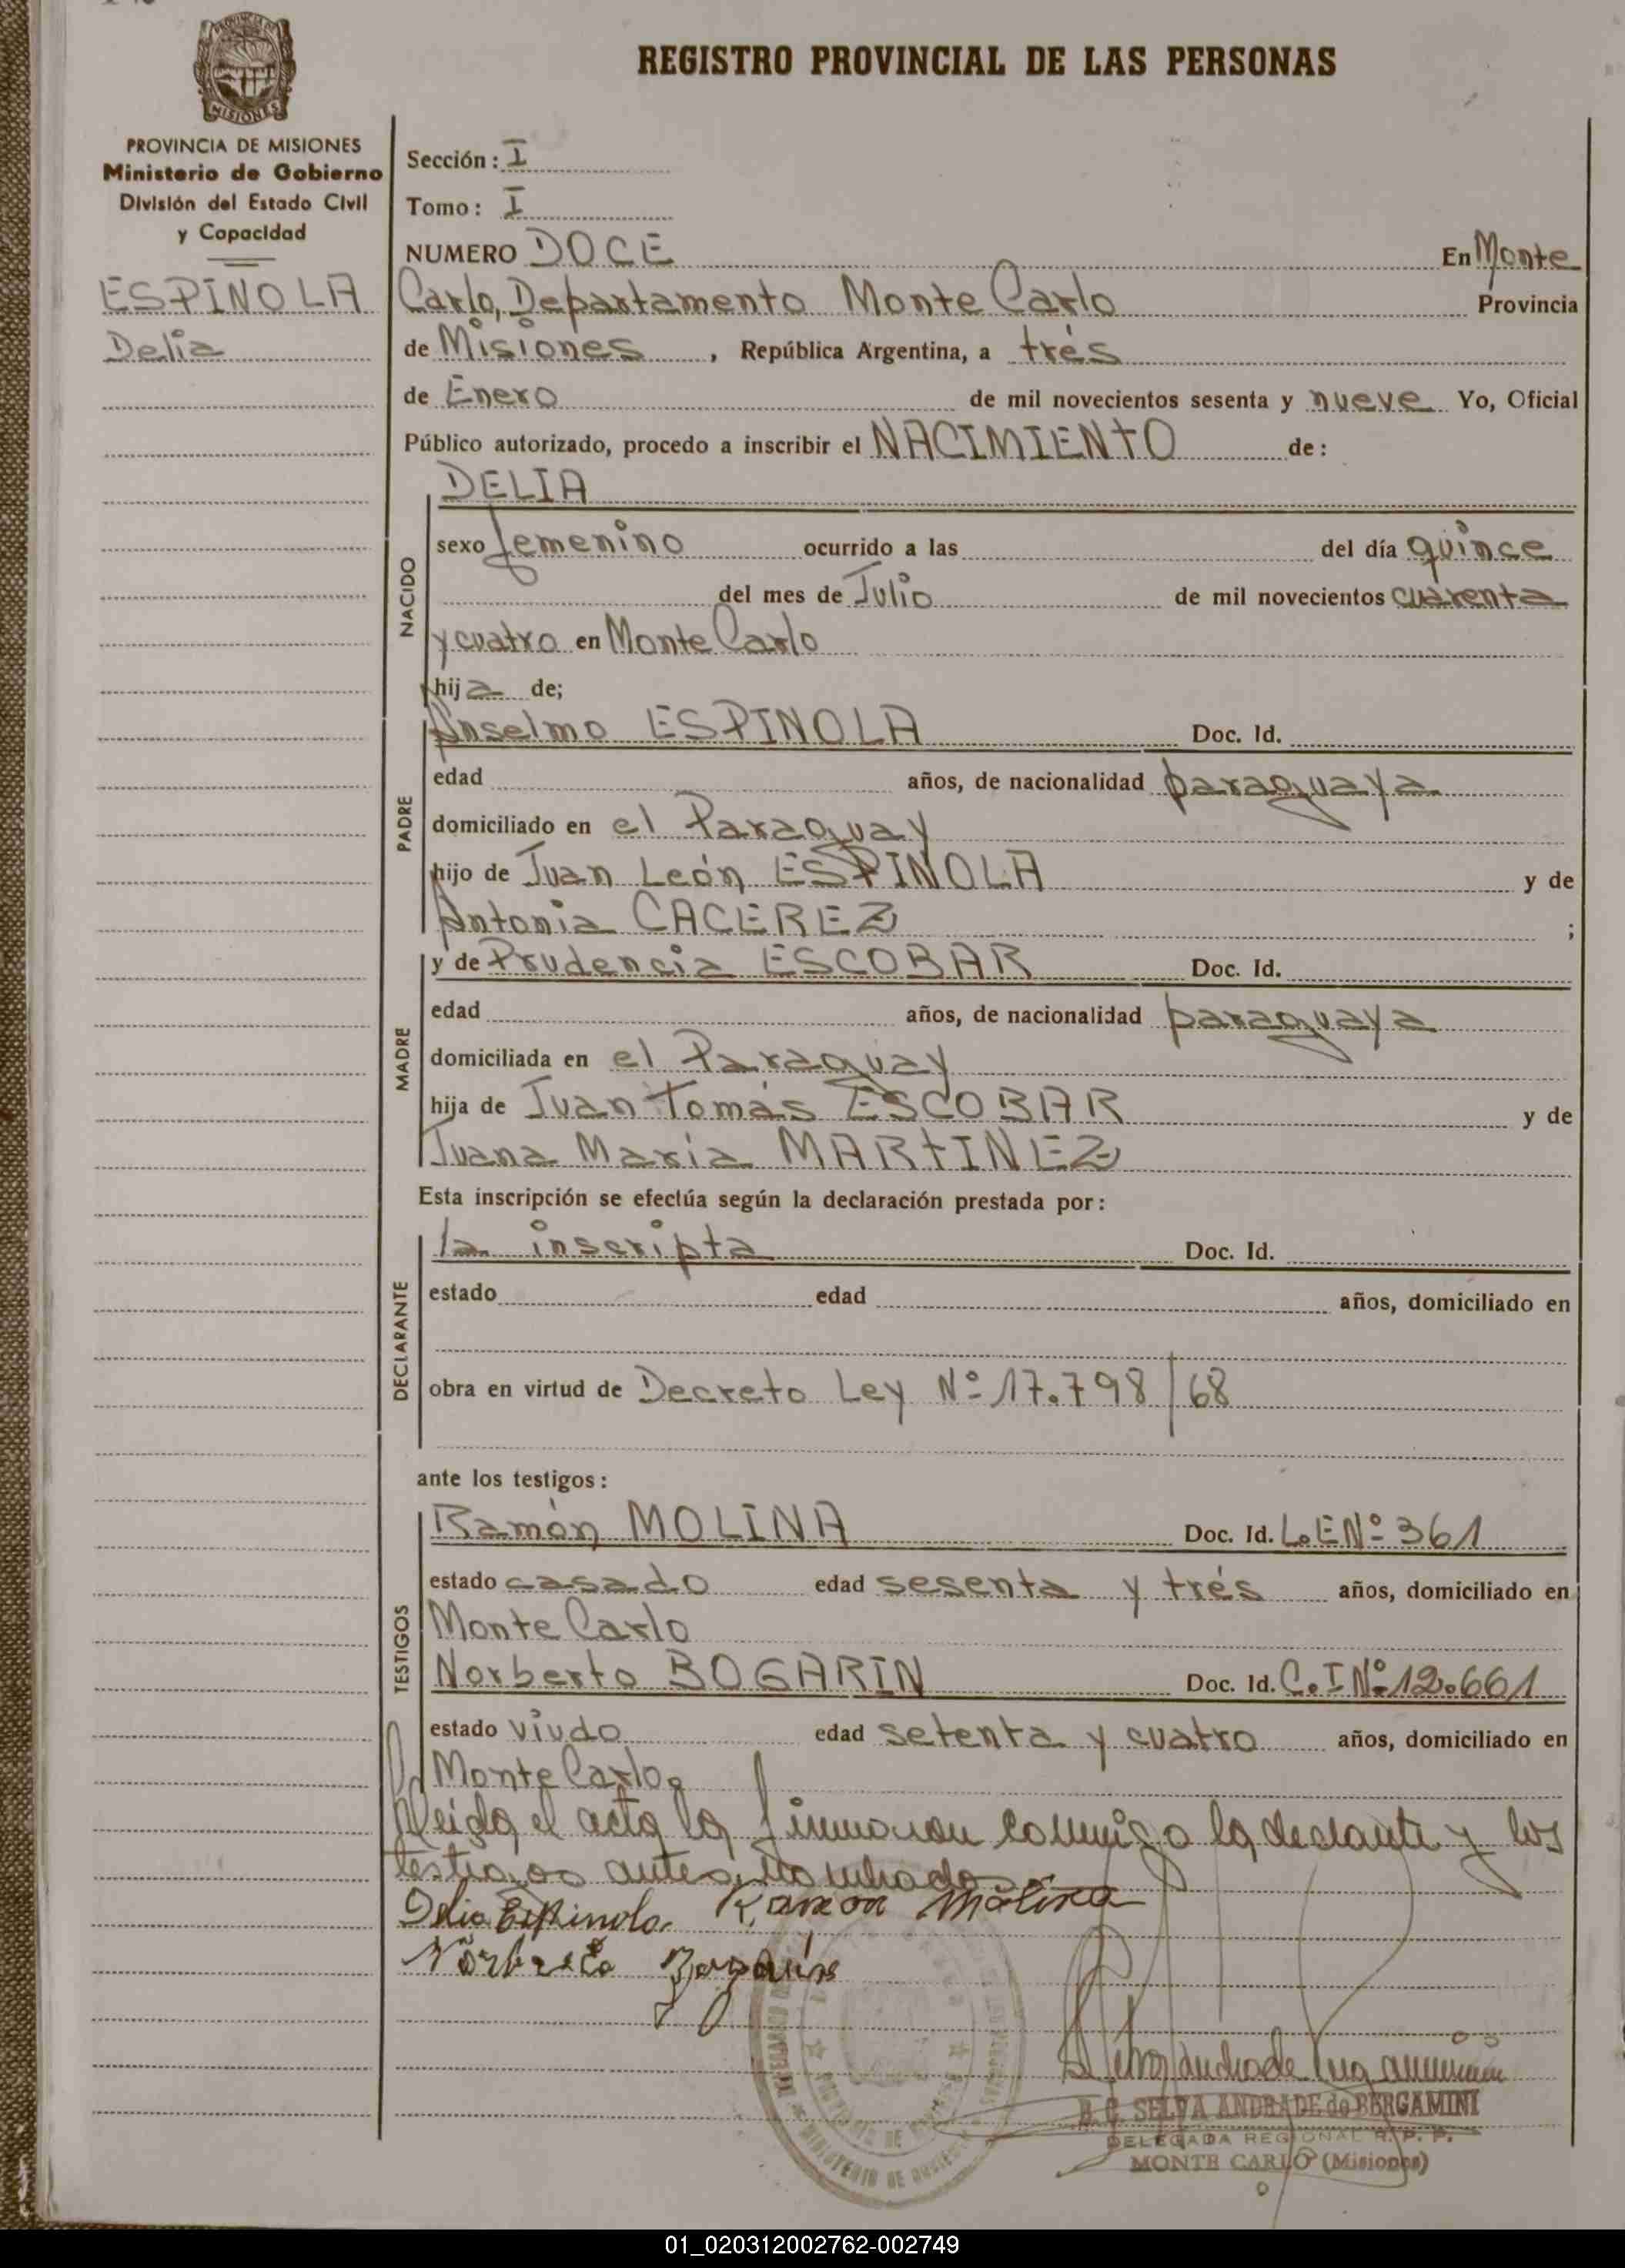 REGISTRO PROVINCIAL DE LAS PERSONAS
MISIONES
PROVINCIA DE MISIONES
Ministerio de Gobierno
División del Estado Civil
y Capacidad
ESPINOLA
Delia
Sección: I
Tomo: I
NUMERO DOCE En Monte
Carlo, Departamento Monte Carlo Provincia
de Misiones, República Argentina, a trés
de Enero de mil novecientos sesenta y nueve Yo, Oficial
Público autorizado, procedo a inscribir el NACIMIENTO de:
NACIDO
DELIA
sexo femenino ocurrido a las del día quince
del mes de Julio de mil novecientos cuarenta
y cuatro en Monte Carlo
hija de;
PADRE
Anselmo ESPINOLA Doc. Id.
edad años, de nacionalidad paraguaya
domiciliado en el Paraguay
hijo de Juan León ESPINOLA y de
Antonia CACEREZ ;
MADRE
y de Prudencia ESCOBAR Doc. Id.
edad años, de nacionalidad paraguaya
domiciliada en el Paraguay
hija de Juan Tomás ESCOBAR y de
Juana María MARTINEZ
Esta inscripción se efectúa según la declaración prestada por:
DECLARANTE
la inscripta Doc. Id.
estado edad años, domiciliado en
obra en virtud de Decreto Ley Nº 17.798/68
ante los testigos:
TESTIGOS
Ramón MOLINA Doc. Id. L.E Nº 361
estado casado edad sesenta y trés años, domiciliado en
Monte Carlo
Norberto BOGARIN Doc. Id. C.I Nº 12.661
estado viudo edad setenta y cuatro años, domiciliado en
Monte Carlo.
Leída el acta la firmaron conmigo la declante y los
testigos antes nombrados
Delia Espinola. Ramon Molina
Norberto Bogarin
B. C. SELVA ANDRADE de BERGAMINI
DELEGADA REGIONAL R. P. P.
MONTE CARLO (Misiones)
01_020312002762-002749